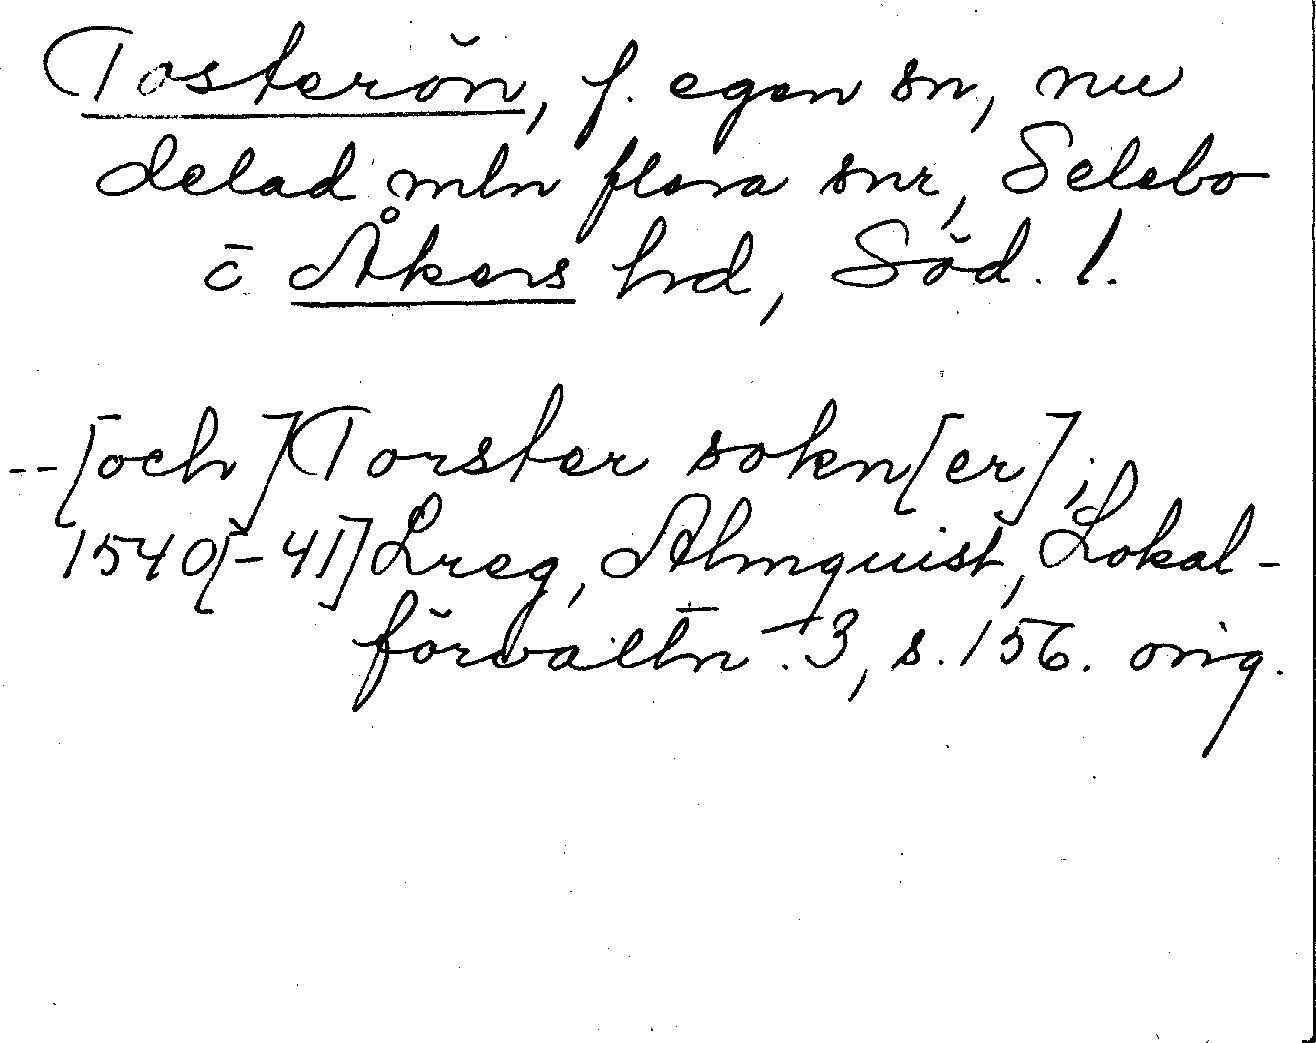 Tosterön, f. egen sn, nu
delad mln flera snr, Selebo
o Åkers hd, Söd. l.
--[och] Torster sokn[er];
1540[-41] Lreg, Almquist, Lokal-
förvaltn. 3, s. 156. orig.